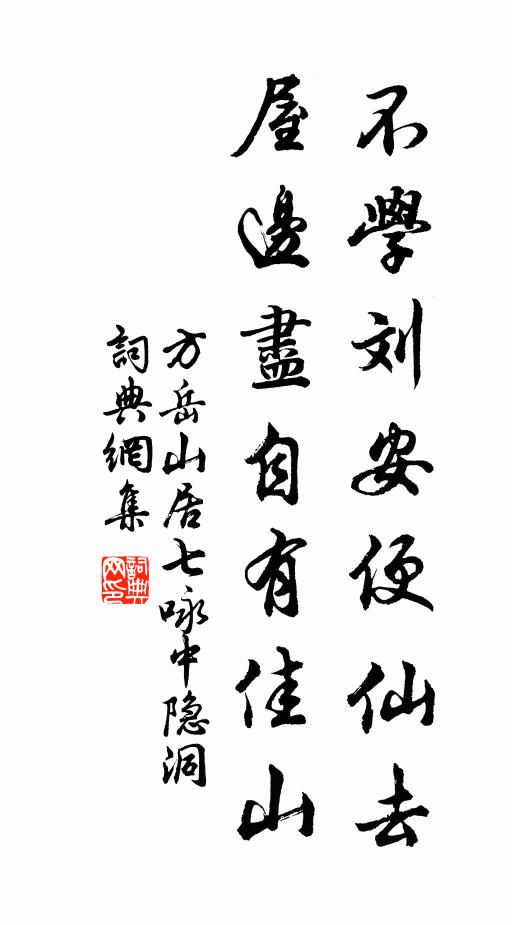 不學刘安便仙去
屋邊盡自有佳山
方岳山居七咏中隐洞
詞典網集
詞典网印